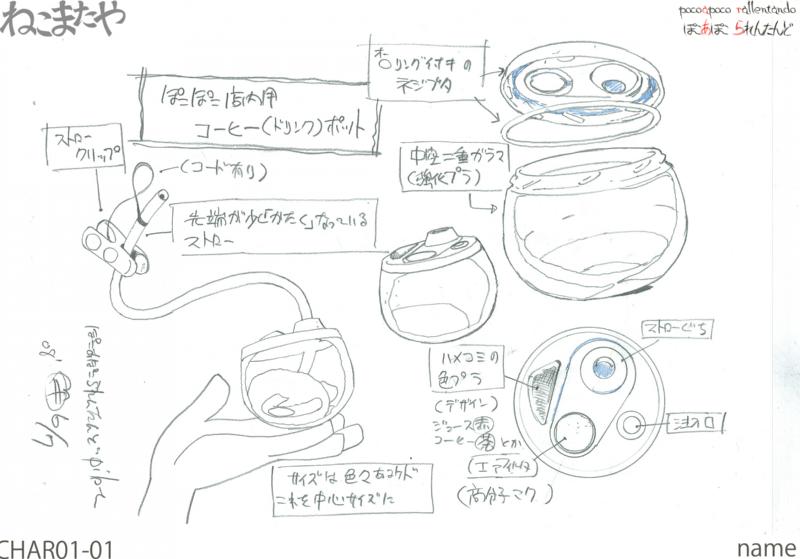 ねこまたや
pocoapoco rallentando
ぽこあぽこ られんたんど
Oリング付きの
ネジブタ
コーヒー(ドリンク)ポット
ストロー
クリップ
(コード有り)
中空二重ガラス
(強化プラ)
先端が少し「かたく」なっている
ストロー
ストローぐち
ハメコミの
色プラ
(デザイン)
ジュース赤
コーヒー茶 とか
(エアフィルタ)
(高分子マク)
注入口
サイズは色々あるケド
これを中心サイズに
CHAR01-01
name